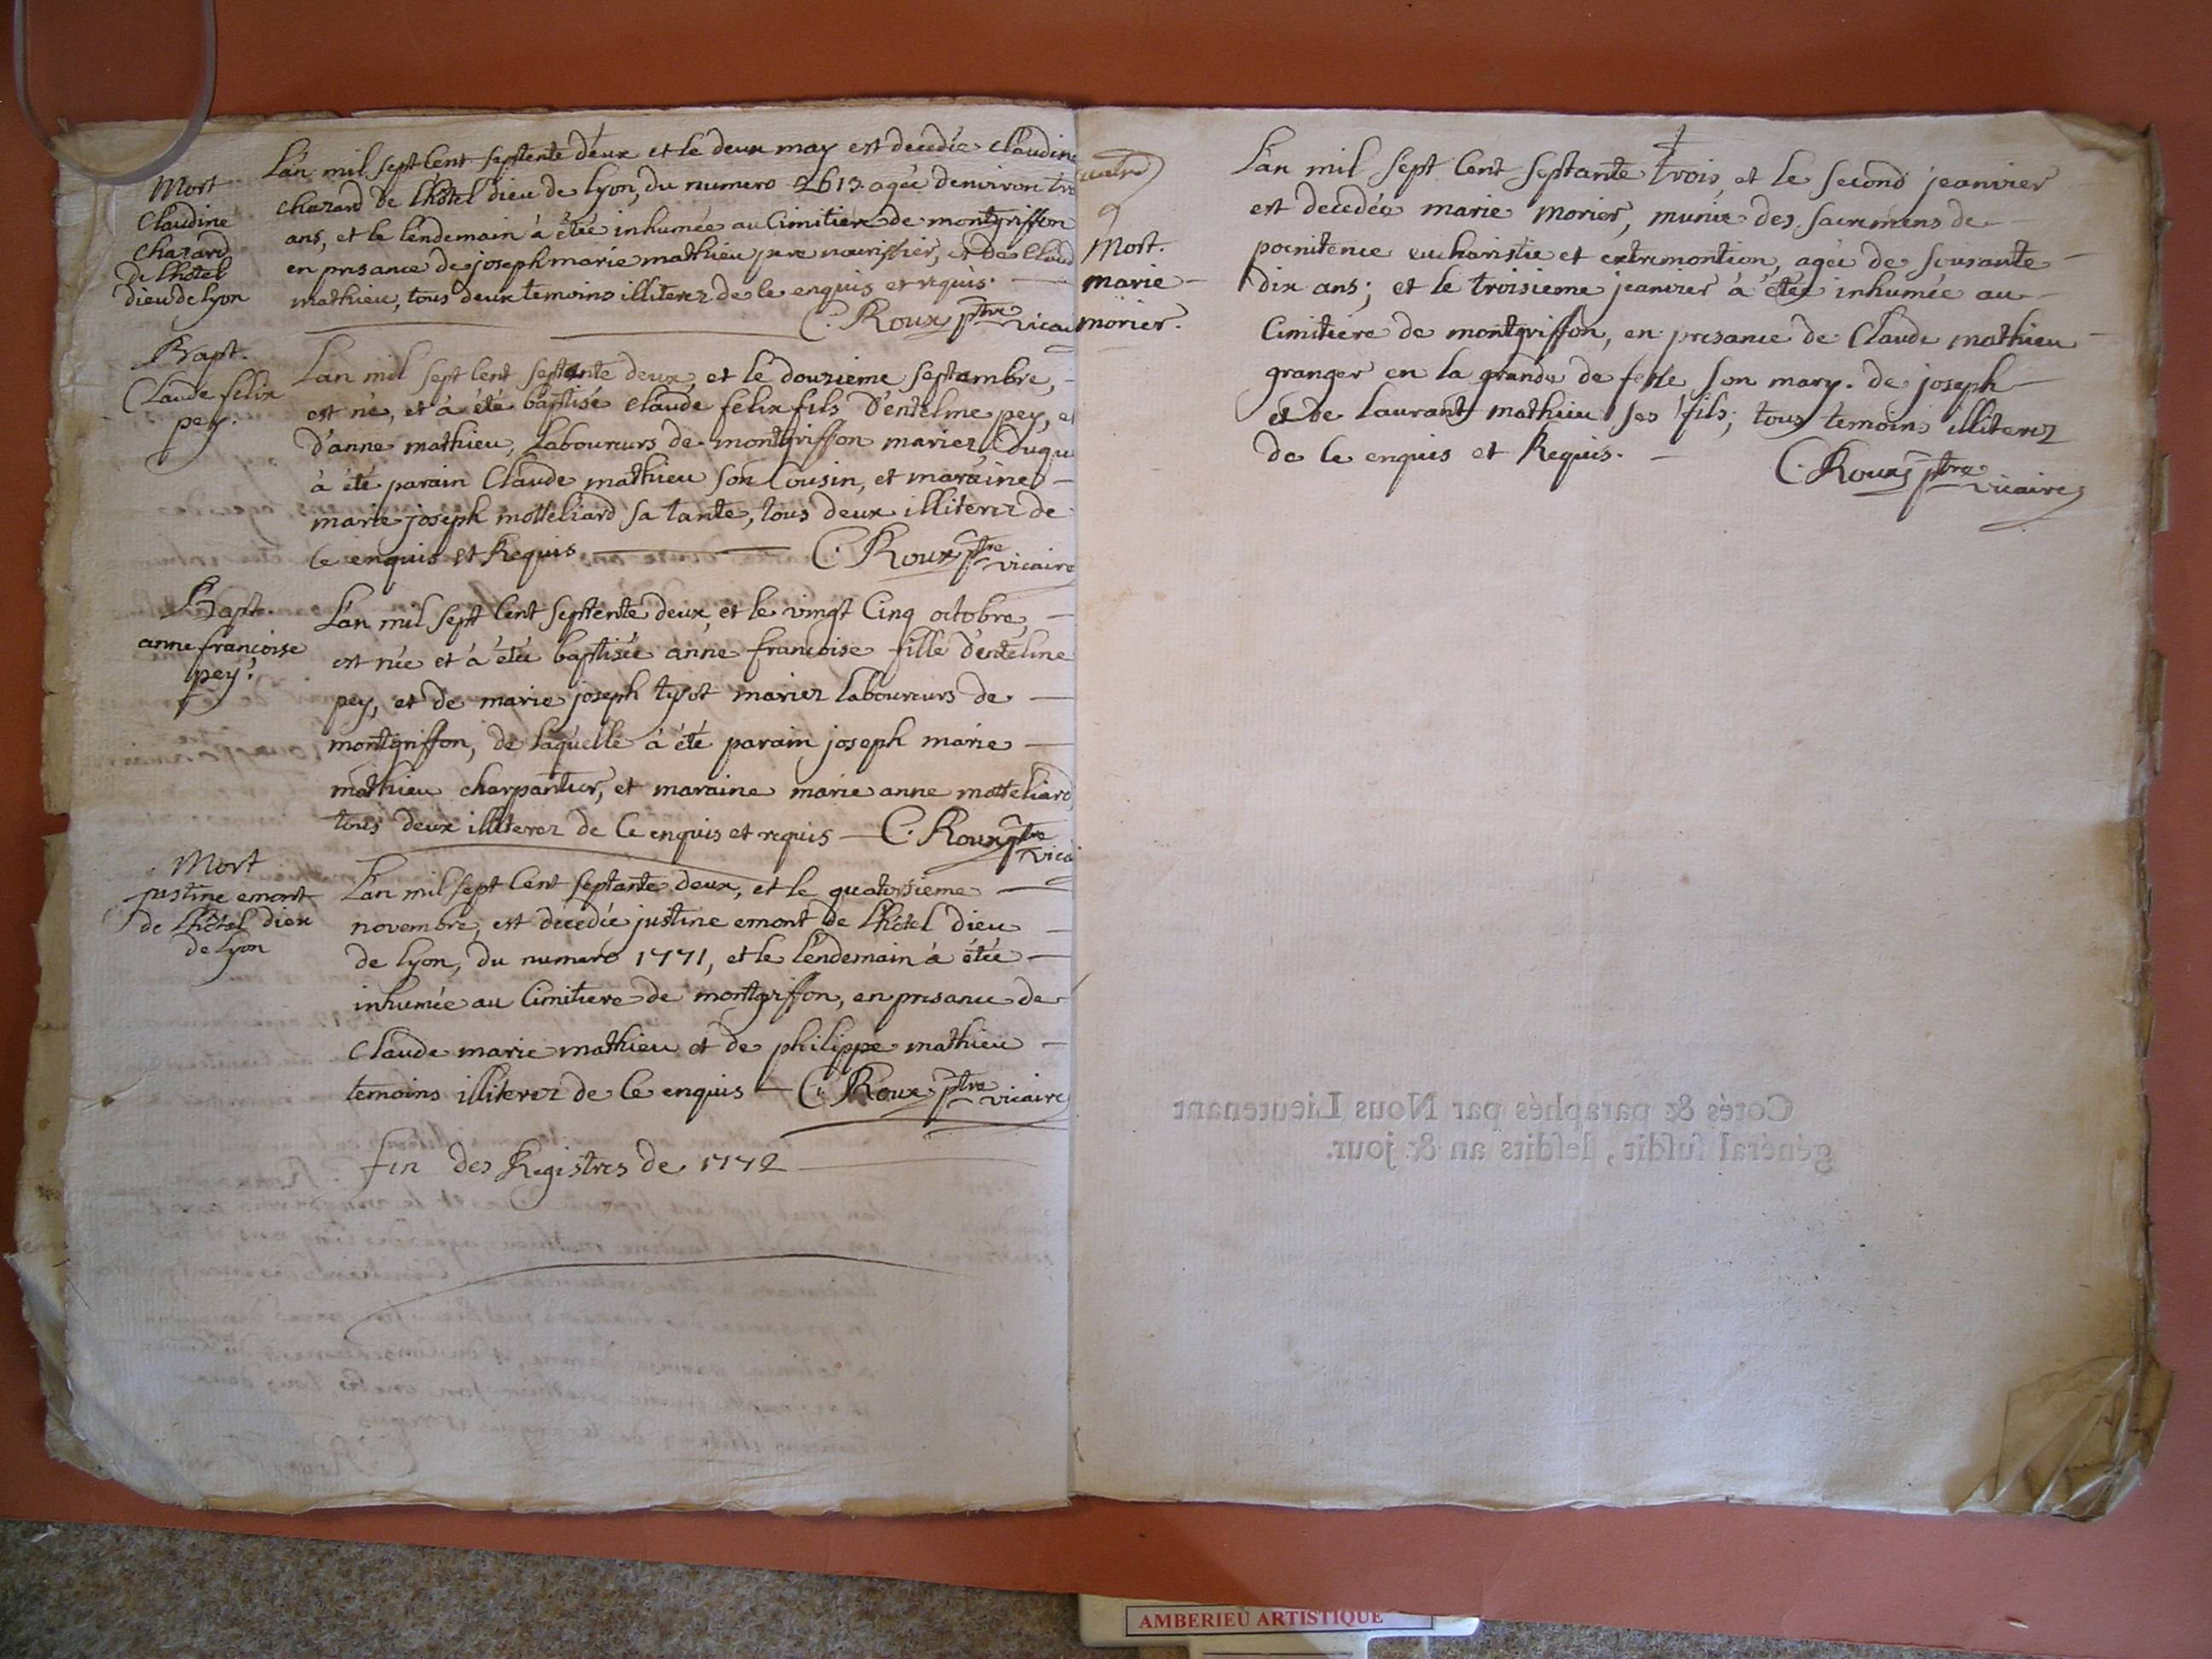 Mort
Claudine
chazard
de lhôtel
dieu de lyon
L'an mil sept Cent septente deux et le deux may est decedée Claudine
chazard de lhôtel dieu de lyon, du numero 2613 agée denviron
ans, et le lendemain à étée inhumée au Cimitiere de montgriffon
en presance de joseph marie mathieu pere nourissier, et de Claud
mathieu, tous deux temoins illiterez de Ce enquis et requis.
C. Roux ptre vicai
Bapt.
Claude felix
pey.
L'an mil sept Cent septante deux, et le douzieme septembre,
est né, et à été baptisé claude felix fils D'entelme pey, et
D'anne mathieu, Laboureurs de montgriffon mariez, Duqu
à été parain Claude mathieu son Cousin, et maraine
marie joseph motteliard sa tante, tous deux illiterez de
Ce enquis et Requis C. Roux ptre vicaire
Bapt.
anne françoise
pey.
L'an mil sept Cent septente deux, et le vingt Cinq octobre,
est née et à étée baptisée anne francoise fille D'entelme
pey, et de marie joseph tysot mariez laboureurs de
montgriffon, de laquelle à été parain joseph marie
mathieu charpantier, et maraine marie anne motteliard
tous deux illiterez de Ce enquis et requis C. Roux ptre
vicai
Mort
justine emont
de lhôtel dieu
de lyon
L'an mil sept Cent septante deux, et le quatorsieme
novembre, est decedée justine emont de lhôtel dieu
de lyon, du numero 1771, et le lendemain à étée
inhumée au Cimitiere de montgriffon, en presance de
Claude marie mathieu et de philippe mathieu
temoins illiterez de Ce enquis C. Roux ptre vicaire
fin des Registres de 1772
Mort.
marie
morier.
L'an mil sept Cent septante trois, et le second jeanvier
est decedée marie morier, munie des sacremens de
poenitence eucharistie et extremontion, agée de soisante
dix ans; et le troisieme jeanvier à étée inhumée au
Cimitiere de montgriffon, en presance de Claude mathieu
granger en la grande de son mary. de joseph
et de Laurant mathieu ses fils; tous temoins illiterez
de Ce enquis et Requis.
C. Roux ptre vicaire
Cotés & paraphés par Nous Lieutenant
général susdit, lesdits an & jour.
AMBERIEU ARTISTIQUE